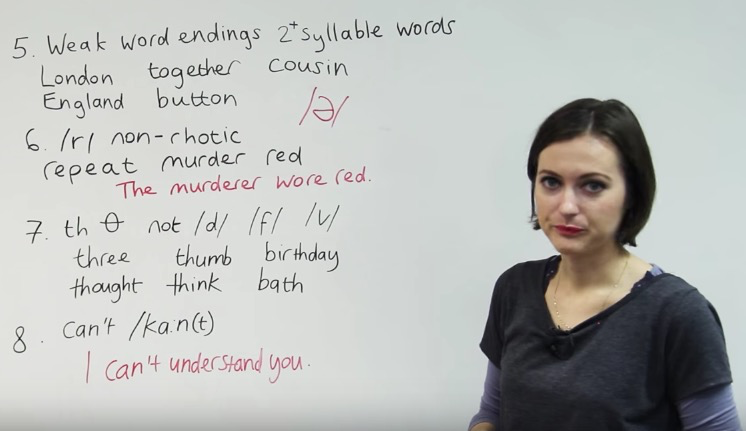 5. Weak word endings 2+ syllable words
London together cousin
England button /ə/
6. /r/ non-rhotic
repeat murder red
The murderer wore red.
7. th θ not /d/ /f/ /v/
three thumb birthday
thought think bath
8. can't /ka:n(t)
I can't understand you.